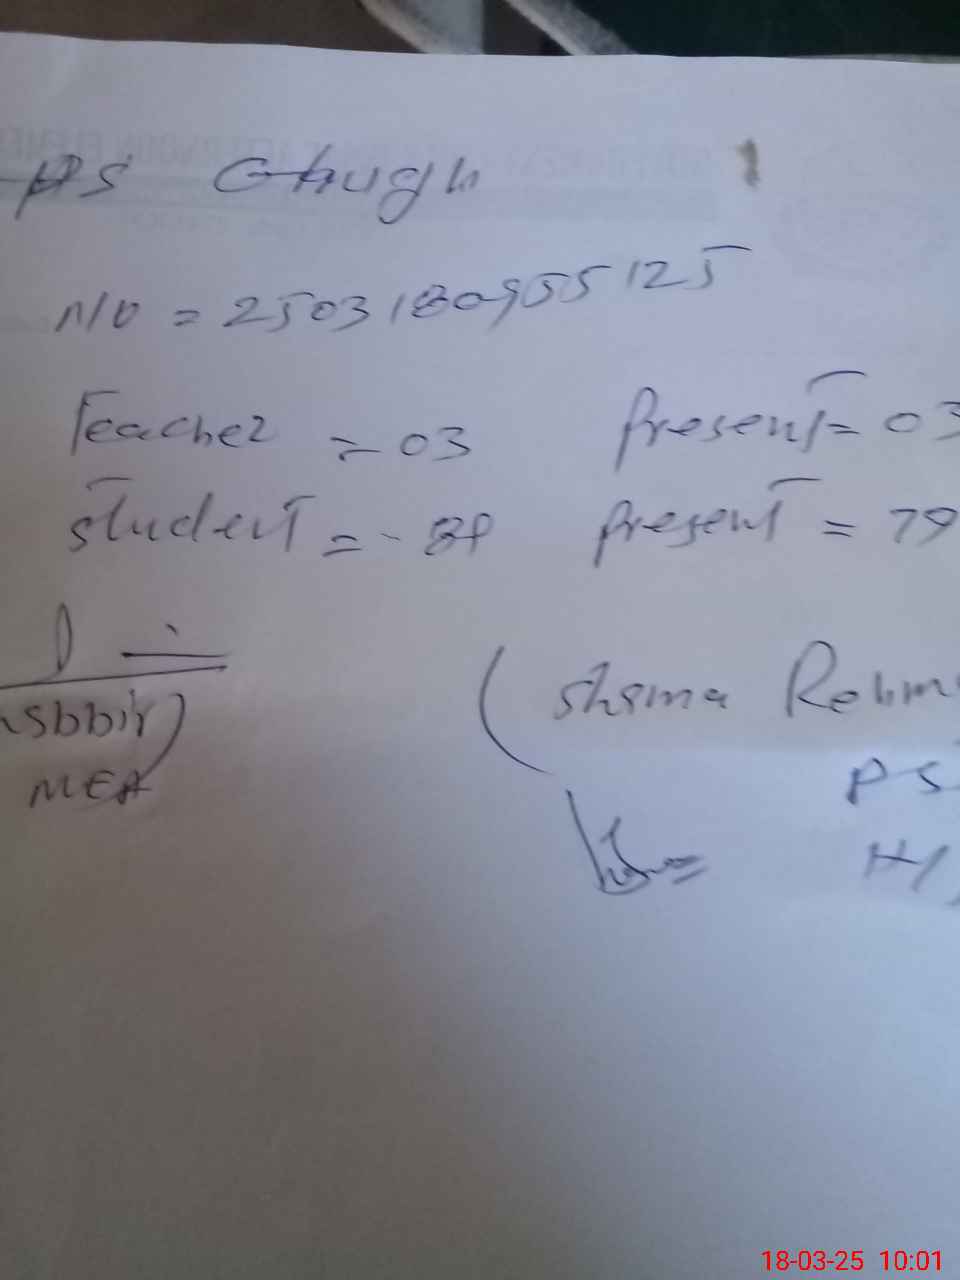 PS Ghugh
N/O = 25031809555125
Teacher = 03 Present = 03
Student = 89 Present = 79
MEA
(Shama Rehm
PS
H/
18-03-25 10:01